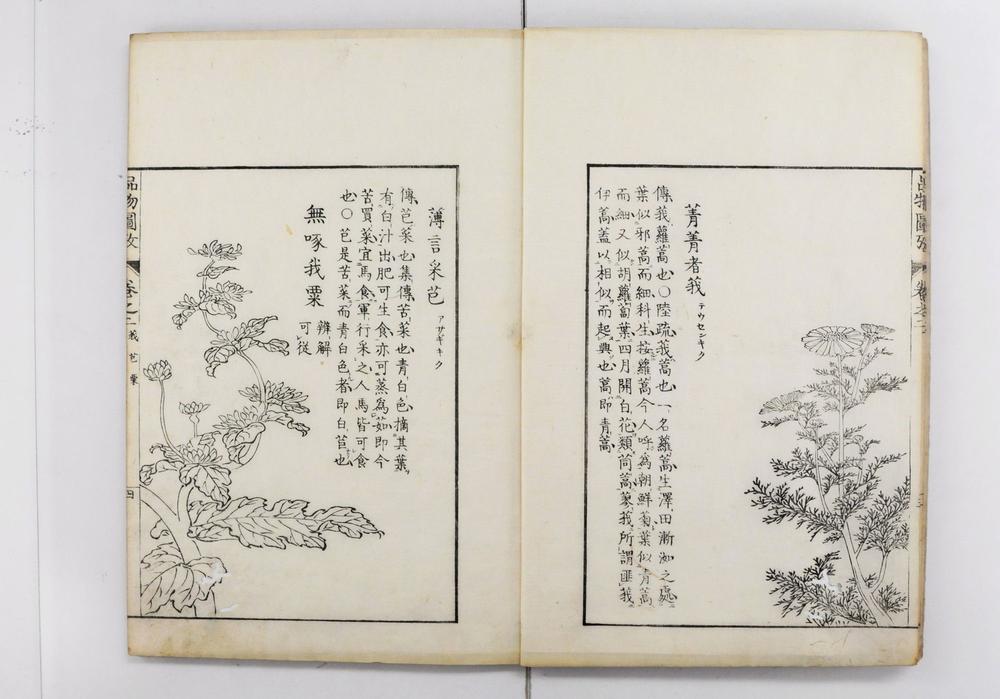 品物圖攷
卷之二
菁菁者莪
テウセンキク
傳莪蘿蒿也○陸疏莪蒿也一名蘿蒿生澤田漸洳之處
葉似邪蒿而細科生按蘿蒿今人呼為朝鮮菊葉似青蒿
而細又似胡蘿蔔葉四月開白花類茼蒿蓼莪所謂匪莪
伊蒿蓋以相似而起興也蒿即青蒿
薄言采芑
アサギキク
傳芑菜也集傳苦菜也青白色摘其葉
有白汁出肥可生食亦可蒸為茹即今
苦買菜宜馬食軍行采之人馬皆可食
也○芑是苦菜而青白色者即白苣也
無啄我粟
辨解
可從
品物圖攷
卷之二
莪 芑 粟
四